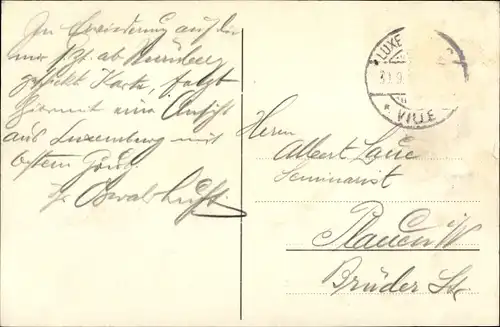 In Erwiderung auf die
mir s. Zt. ab Nürnberg
geschickte Karte, folgt
hiermit eine Ansicht
aus Luxemburg mit
bestem Gruß.
Oswald
LUXE
VILLE
Herrn
Albert Laue
Seminarist
Plauen i/V
Brüder Str.